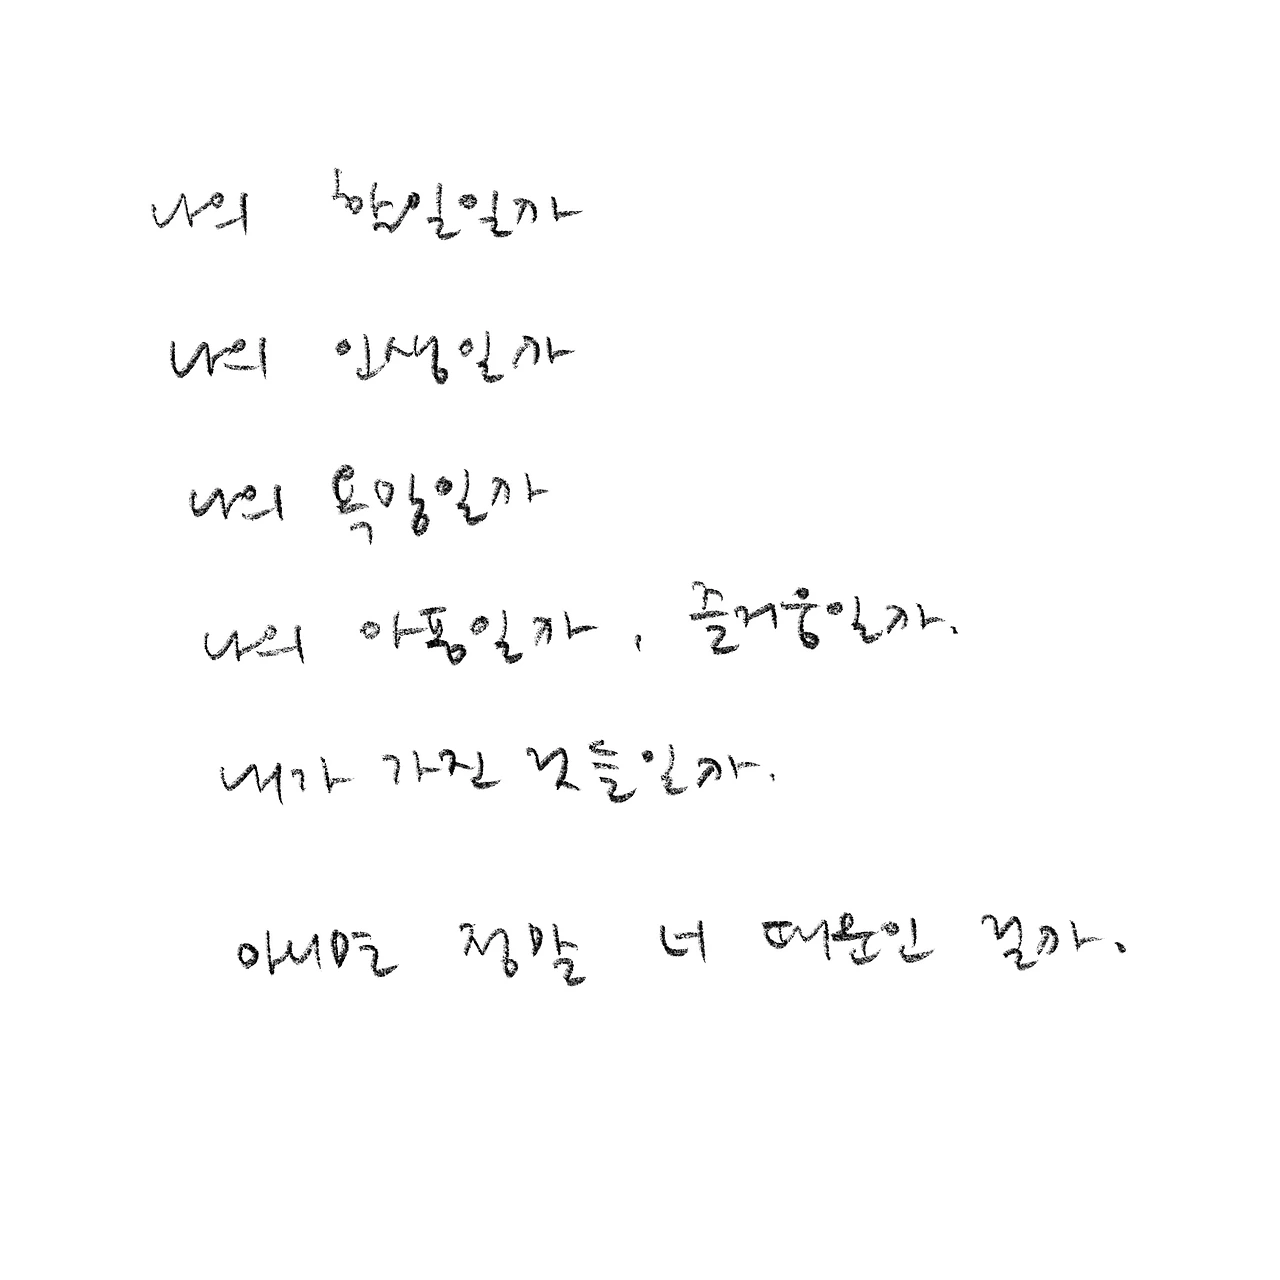 나의 합일일까
나의 인생일까
나의 욕망일까
나의 아픔일까, 즐거움일까.
내가 가진 것들일까.
아니면 정말 너 때문인 걸까.